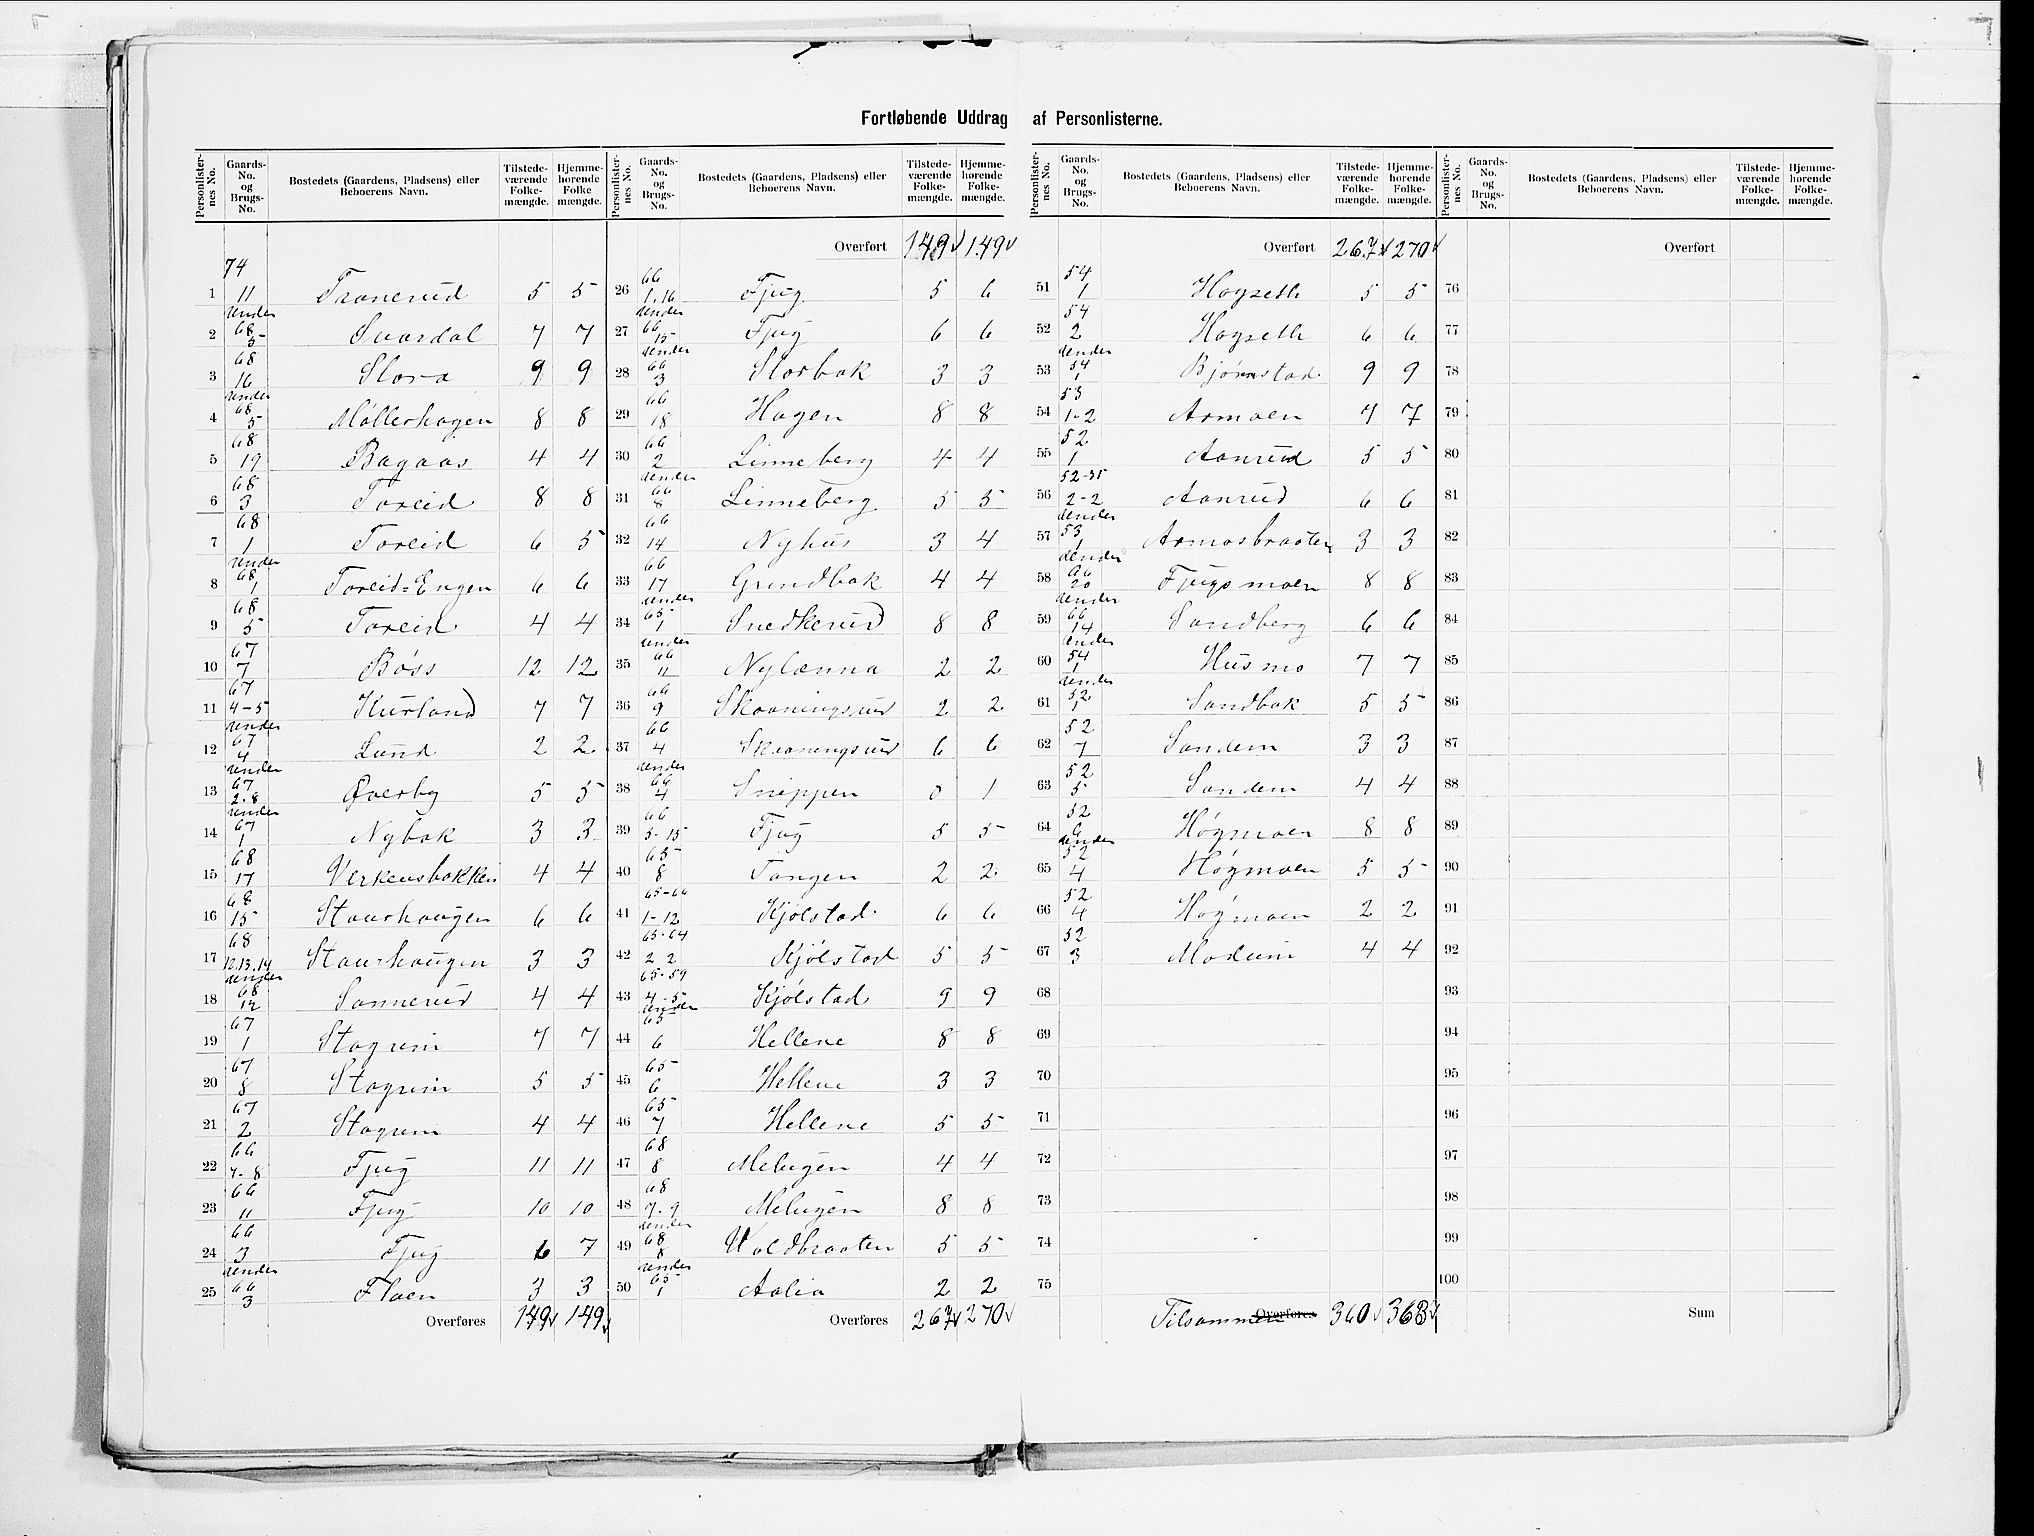 Fortløbende Uddrag af Personlisterne.
Personlisternes No. | Gaards-No. og Brugs-No. | Bostedets (Gaardens, Pladsens) eller Beboerens Navn. | Tilstedeværende Folkemængde. | Hjemmehørende Folkemængde.
1 74 11 Tranerud 5 5
2 under 68 5 Svardal 7 7
3 68 16 Slora 9 9
4 under 68 5 Møllerhagen 8 8
5 68 19 Bagaas 4 4
6 68 3 Toreid 8 8
7 68 1 Toreid 6 5
8 under 68 1 Toreid=Engen 6 6
9 68 5 Toreid 4 4
10 67 7 Böss 12 12
11 67 4-5 Kurland 7 7
12 under 67 4 Lund 2 2
13 under 67 2.8 Øverby 5 5
14 under 67 1 Nybak 3 3
15 68 17 Verkensbakken 4 4
16 68 15 Staurhaugen 6 6
17 68 12.13.14 Staurhaugen 3 3
18 under 68 12 Sannerud 4 4
19 67 1 Stagrim 7 7
20 67 8 Stagrim 5 5
21 67 2 Stagrim 4 4
22 66 7-8 Fjug 11 11
23 66 11 Fjug 10 10
24 66 3 Fjug 6 7
25 under 66 3 Floen 3 3
Overføres 149 149
Overført 149 149
26 66 1.16 Fjug 5 6
27 under 66 15 Fjug 6 6
28 under 66 3 Storbak 3 3
29 66 18 Hagen 8 8
30 66 2 Linneberg 4 4
31 under 66 8 Linneberg 5 5
32 66 14 Nyhus 3 4
33 66 17 Grindbak 4 4
34 under 65 1 Snedkerud 8 8
35 under 66 11 Nylænna 2 2
36 66 9 Skaaningsrud 2 2
37 66 4 Skaaningsrud 6 6
38 under 66 4 Snippen 0 1
39 66 5-15 Fjug 5 5
40 65 8 Tangen 2 2
41 65-66 1-12 Kjølstad 6 6
42 65-64 2 2 Kjølstad 5 5
43 65-59 4-5 Kjølstad 9 9
44 under 65 6 Hellene 8 8
45 65 6 Hellene 3 3
46 65 7 Hellene 5 5
47 68 8 Melugen 4 4
48 68 7.9 Melugen 8 8
49 under 68 8 Woldbraaten 5 5
50 under 65 1 Aalia 2 2
Overføres 267 270
Overført 267 270
51 54 1 Hogseth 5 5
52 54 2 Hogseth 6 6
53 under 54 1 Bjørnstad 9 9
54 53 1-2 Armoen 7 7
55 52 1 Aanrud 5 5
56 52-35 2-2 Aanrud 6 6
57 under 53 1 Armosbraaten 3 3
58 under 66 20 Fjugsmoen 8 8
59 under 66 14 Sandberg 6 6
60 under 54 1 Husmo 7 7
61 under 52 1 Sandbak 5 5
62 52 7 Sandem 3 3
63 52 5 Sandem 4 4
64 52 6 Høgmoen 8 8
65 under 52 4 Høgmoen 5 5
66 52 4 Høgmoen 2 2
67 52 3 Modum 4 4
68
69
70
71
72
73
74
75
Tilsammen Overføres 360 363
Overført
76
77
78
79
80
81
82
83
84
85
86
87
88
89
90
91
92
93
94
95
96
97
98
99
100
Sum